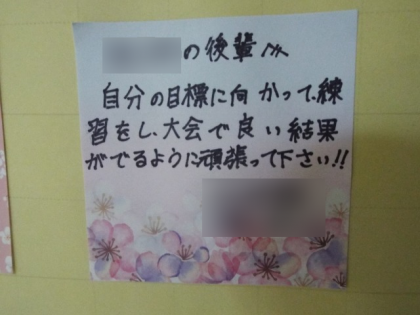 の後輩へ
自分の目標に向かって、練
習をし、大会で良い結果
がでるように頑張って下さい!!